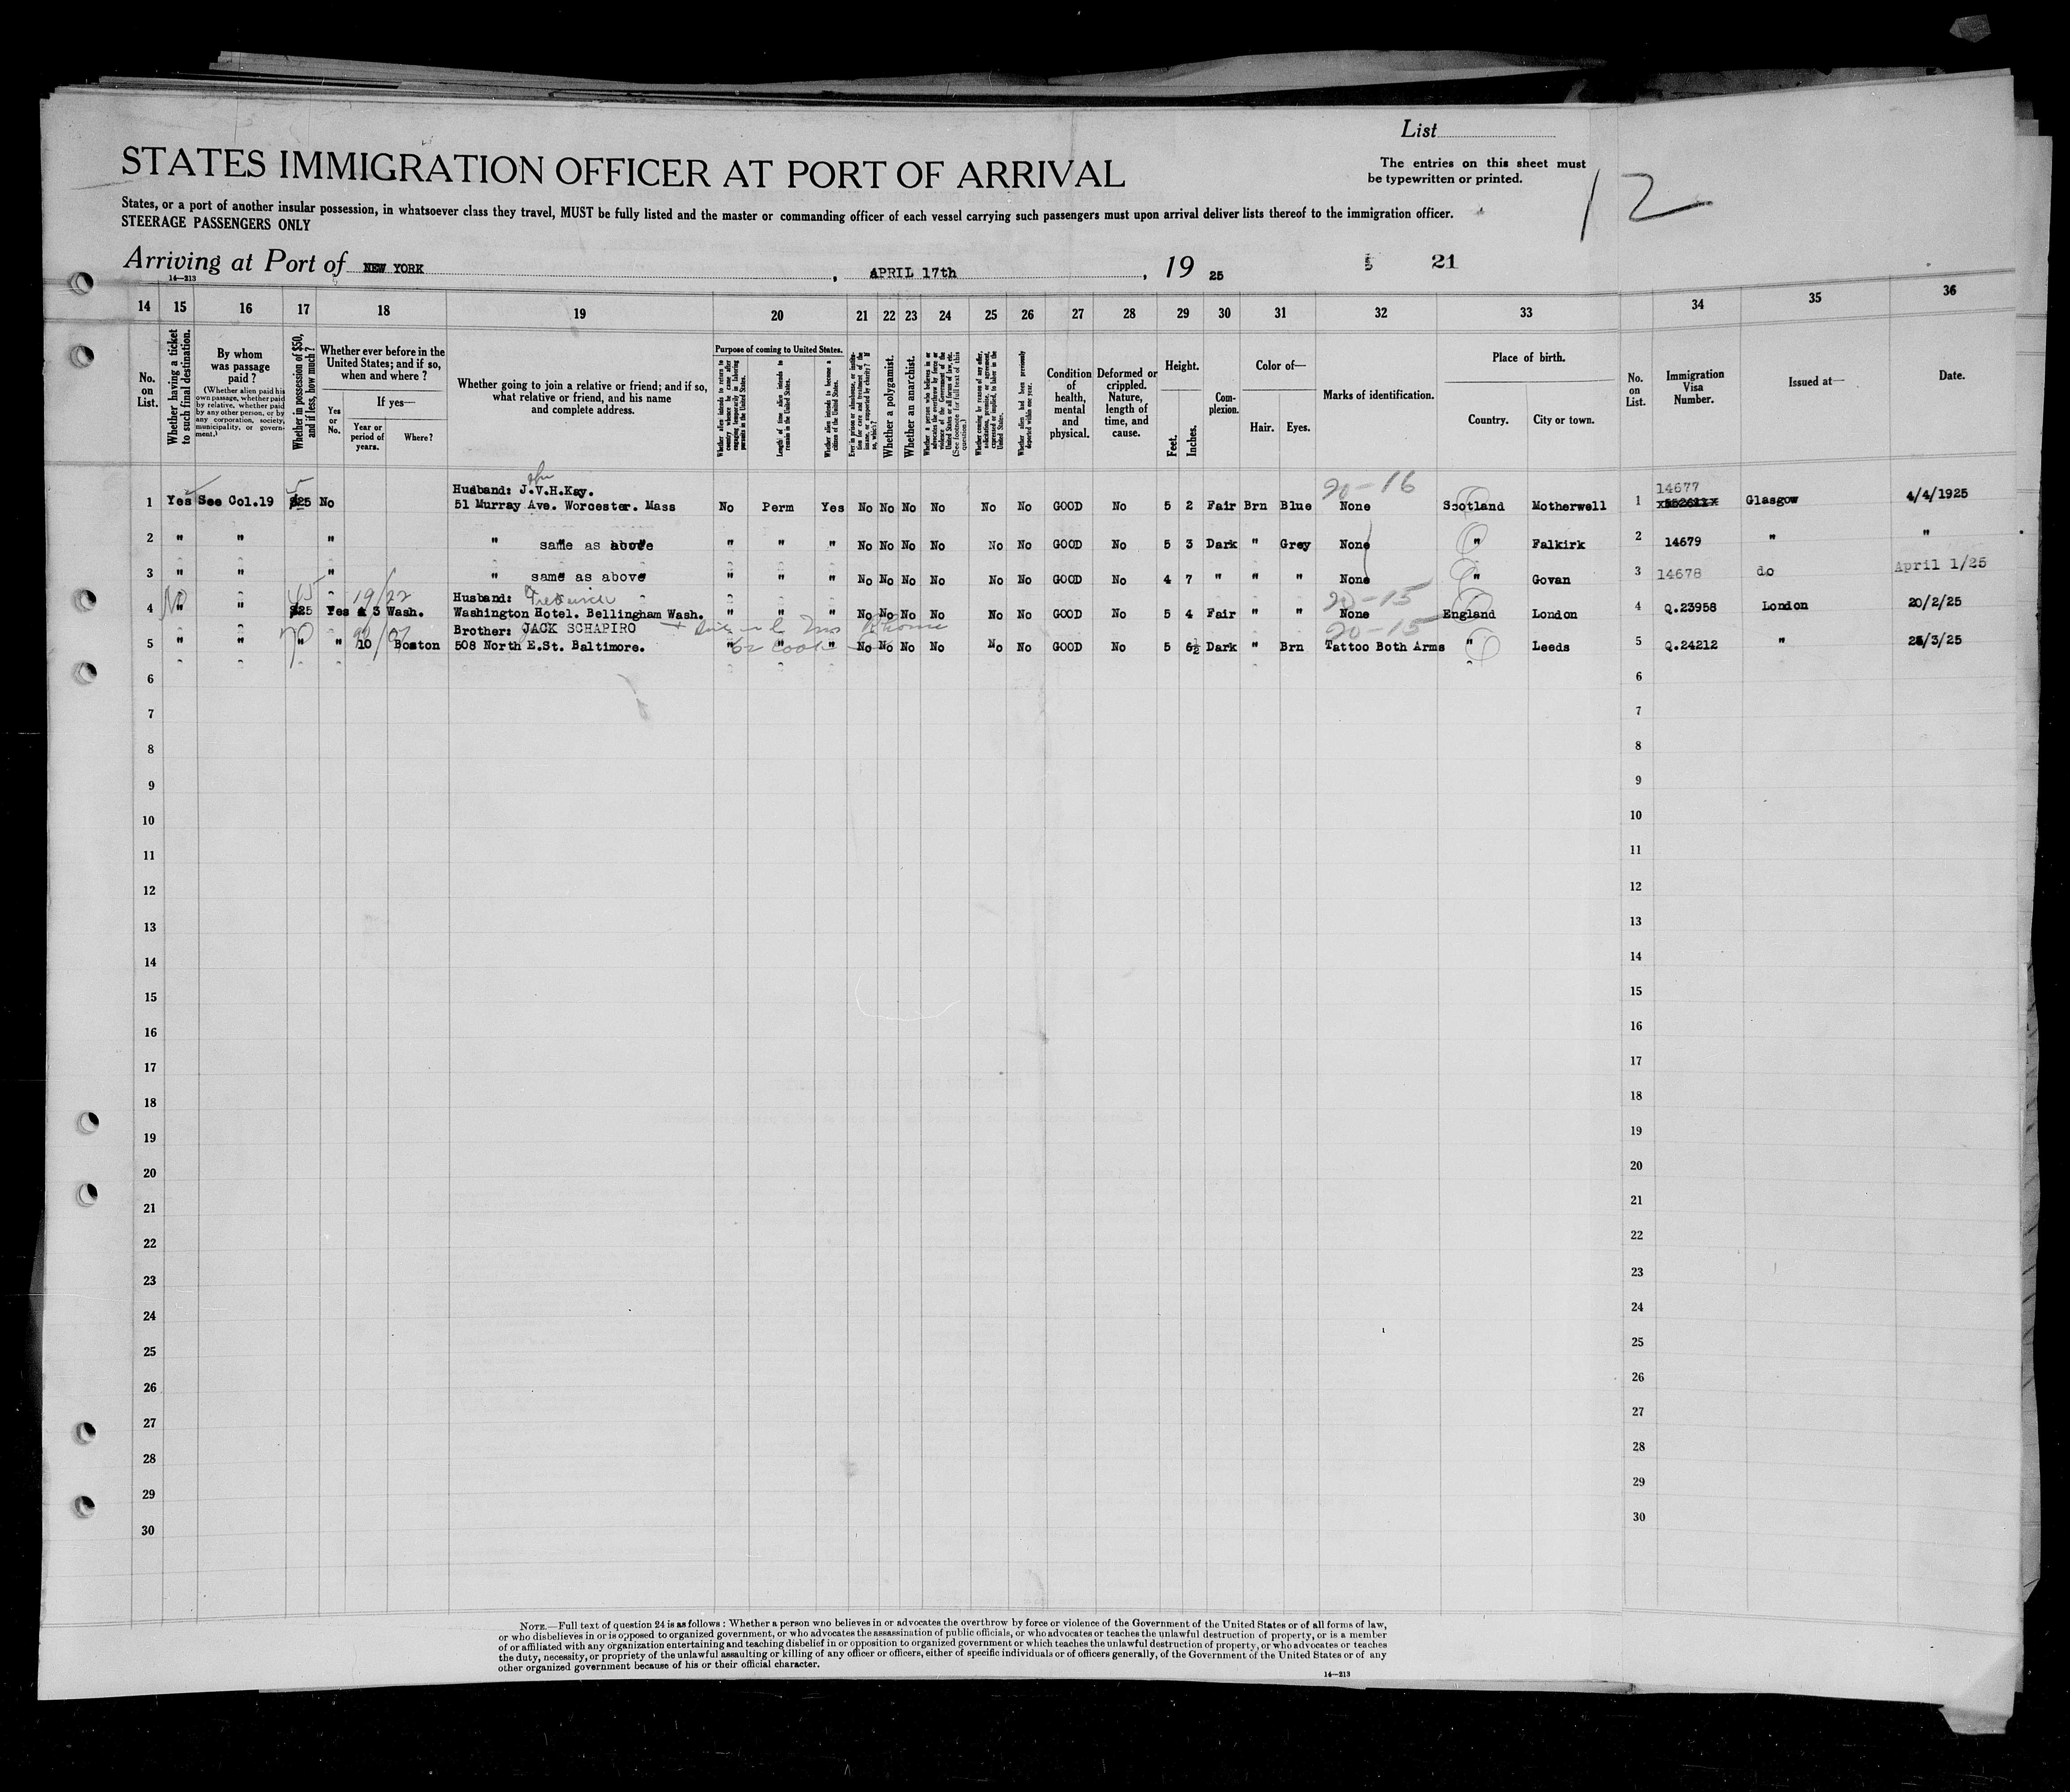 List
STATES IMMIGRATION OFFICER AT PORT OF ARRIVAL
The entries on this sheet must
be typewritten or printed.
12
States, or a port of another insular possession, in whatsoever class they travel, MUST be fully listed and the master or commanding officer of each vessel carrying such passengers must upon arrival deliver lists thereof to the immigration officer.
STEERAGE PASSENGERS ONLY
Arriving at Port of NEW YORK, APRIL 17th, 19 25
21
14—213
14 15 16 17 18 19 20 21 22 23 24 25 26 27 28 29 30 31 32 33 34 35 36
No. on List.
Whether having a ticket to such final destination.
By whom was passage paid?
(Whether alien paid his own passage, whether paid by relative, whether paid by any other person, or by any corporation, society, municipality, or government.)
Whether in possession of $50, and if less, how much?
Whether ever before in the United States; and if so, when and where?
If yes—
Yes or No.
Year or period of years.
Where?
Whether going to join a relative or friend; and if so, what relative or friend, and his name and complete address.
Purpose of coming to United States.
Whether alien intends to return to country whence he came after engaging temporarily in laboring pursuits in the United States.
Length of time alien intends to remain in the United States.
Whether alien intends to become a citizen of the United States.
Ever in prison or almshouse, or institution for care and treatment of the insane, or supported by charity? If so, which?
Whether a polygamist.
Whether an anarchist.
Whether a person who believes in or advocates the overthrow by force or violence of the Government of the United States or all forms of law, etc. (See footnote for full text of this question.)
Whether coming by reason of any offer, solicitation, promise, or agreement, expressed or implied, to labor in the United States.
Whether alien had been previously deported within one year.
Condition of health, mental and physical.
Deformed or crippled. Nature, length of time, and cause.
Height.
Feet.
Inches.
Complexion.
Color of—
Hair.
Eyes.
Marks of identification.
Place of birth.
Country.
City or town.
No. on List.
Immigration Visa Number.
Issued at—
Date.
Husband: J.V.H.Kay. 20-16 14677
1 Yes See Col.19 $25 No 51 Murray Ave. Worcester. Mass No Perm Yes No No No No No No GOOD No 5 2 Fair Brn Blue None Scotland Motherwell 1 Glasgow 4/4/1925
2 " " " " same as above " " " No No No No No No GOOD No 5 3 Dark " Grey None " Falkirk 2 14679 " "
3 " " " " same as above " " " No No No No No No GOOD No 4 7 " " " None " Govan 3 14678 do April 1/25
No 45 19/22 Husband: Frederick 20-15
4 " " $25 Yes & 3 Wash. Washington Hotel. Bellingham Wash. " " " No No No No No No GOOD No 5 4 Fair " " None England London 4 Q.23958 London 20/2/25
Brother: JACK SCHAPIRO 20-15
5 " " " " 10 Boston 508 North E.St. Baltimore. " " " No No No No No No GOOD No 5 6½ Dark " Brn Tattoo Both Arms " Leeds 5 Q.24212 " /3/25
6 6
7 7
8 8
9 9
10 10
11 11
12 12
13 13
14 14
15 15
16 16
17 17
18 18
19 19
20 20
21 21
22 22
23 23
24 24
25 25
26 26
27 27
28 28
29 29
30 30
NOTE.—Full text of question 24 is as follows: Whether a person who believes in or advocates the overthrow by force or violence of the Government of the United States or of all forms of law,
or who disbelieves in or is opposed to organized government, or who advocates the assassination of public officials, or who advocates or teaches the unlawful destruction of property, or is a member
of or affiliated with any organization entertaining and teaching disbelief in or opposition to organized government or which teaches the unlawful destruction of property, or who advocates or teaches
the duty, necessity, or propriety of the unlawful assaulting or killing of any officer or officers, either of specific individuals or of officers generally, of the Government of the United States or of any
other organized government because of his or their official character.
14—213